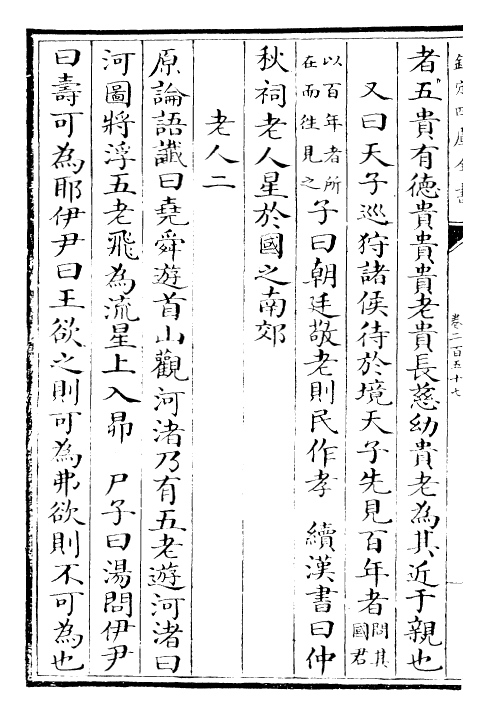 欽定四庫全書
卷二百五十七
者五貴有德貴貴貴老貴長慈幼貴老為其近于親也
又曰天子巡狩諸侯待於境天子先見百年者問其國君
以百年者所在而往見之子曰朝廷敬老則民作孝　續漢書曰仲
秋祠老人星於國之南郊
老人二
原論語讖曰堯舜遊首山觀河渚乃有五老遊河渚曰
河圖將浮五老飛為流星上入昴　尸子曰湯問伊尹
曰壽可為耶伊尹曰王欲之則可為弗欲則不可為也